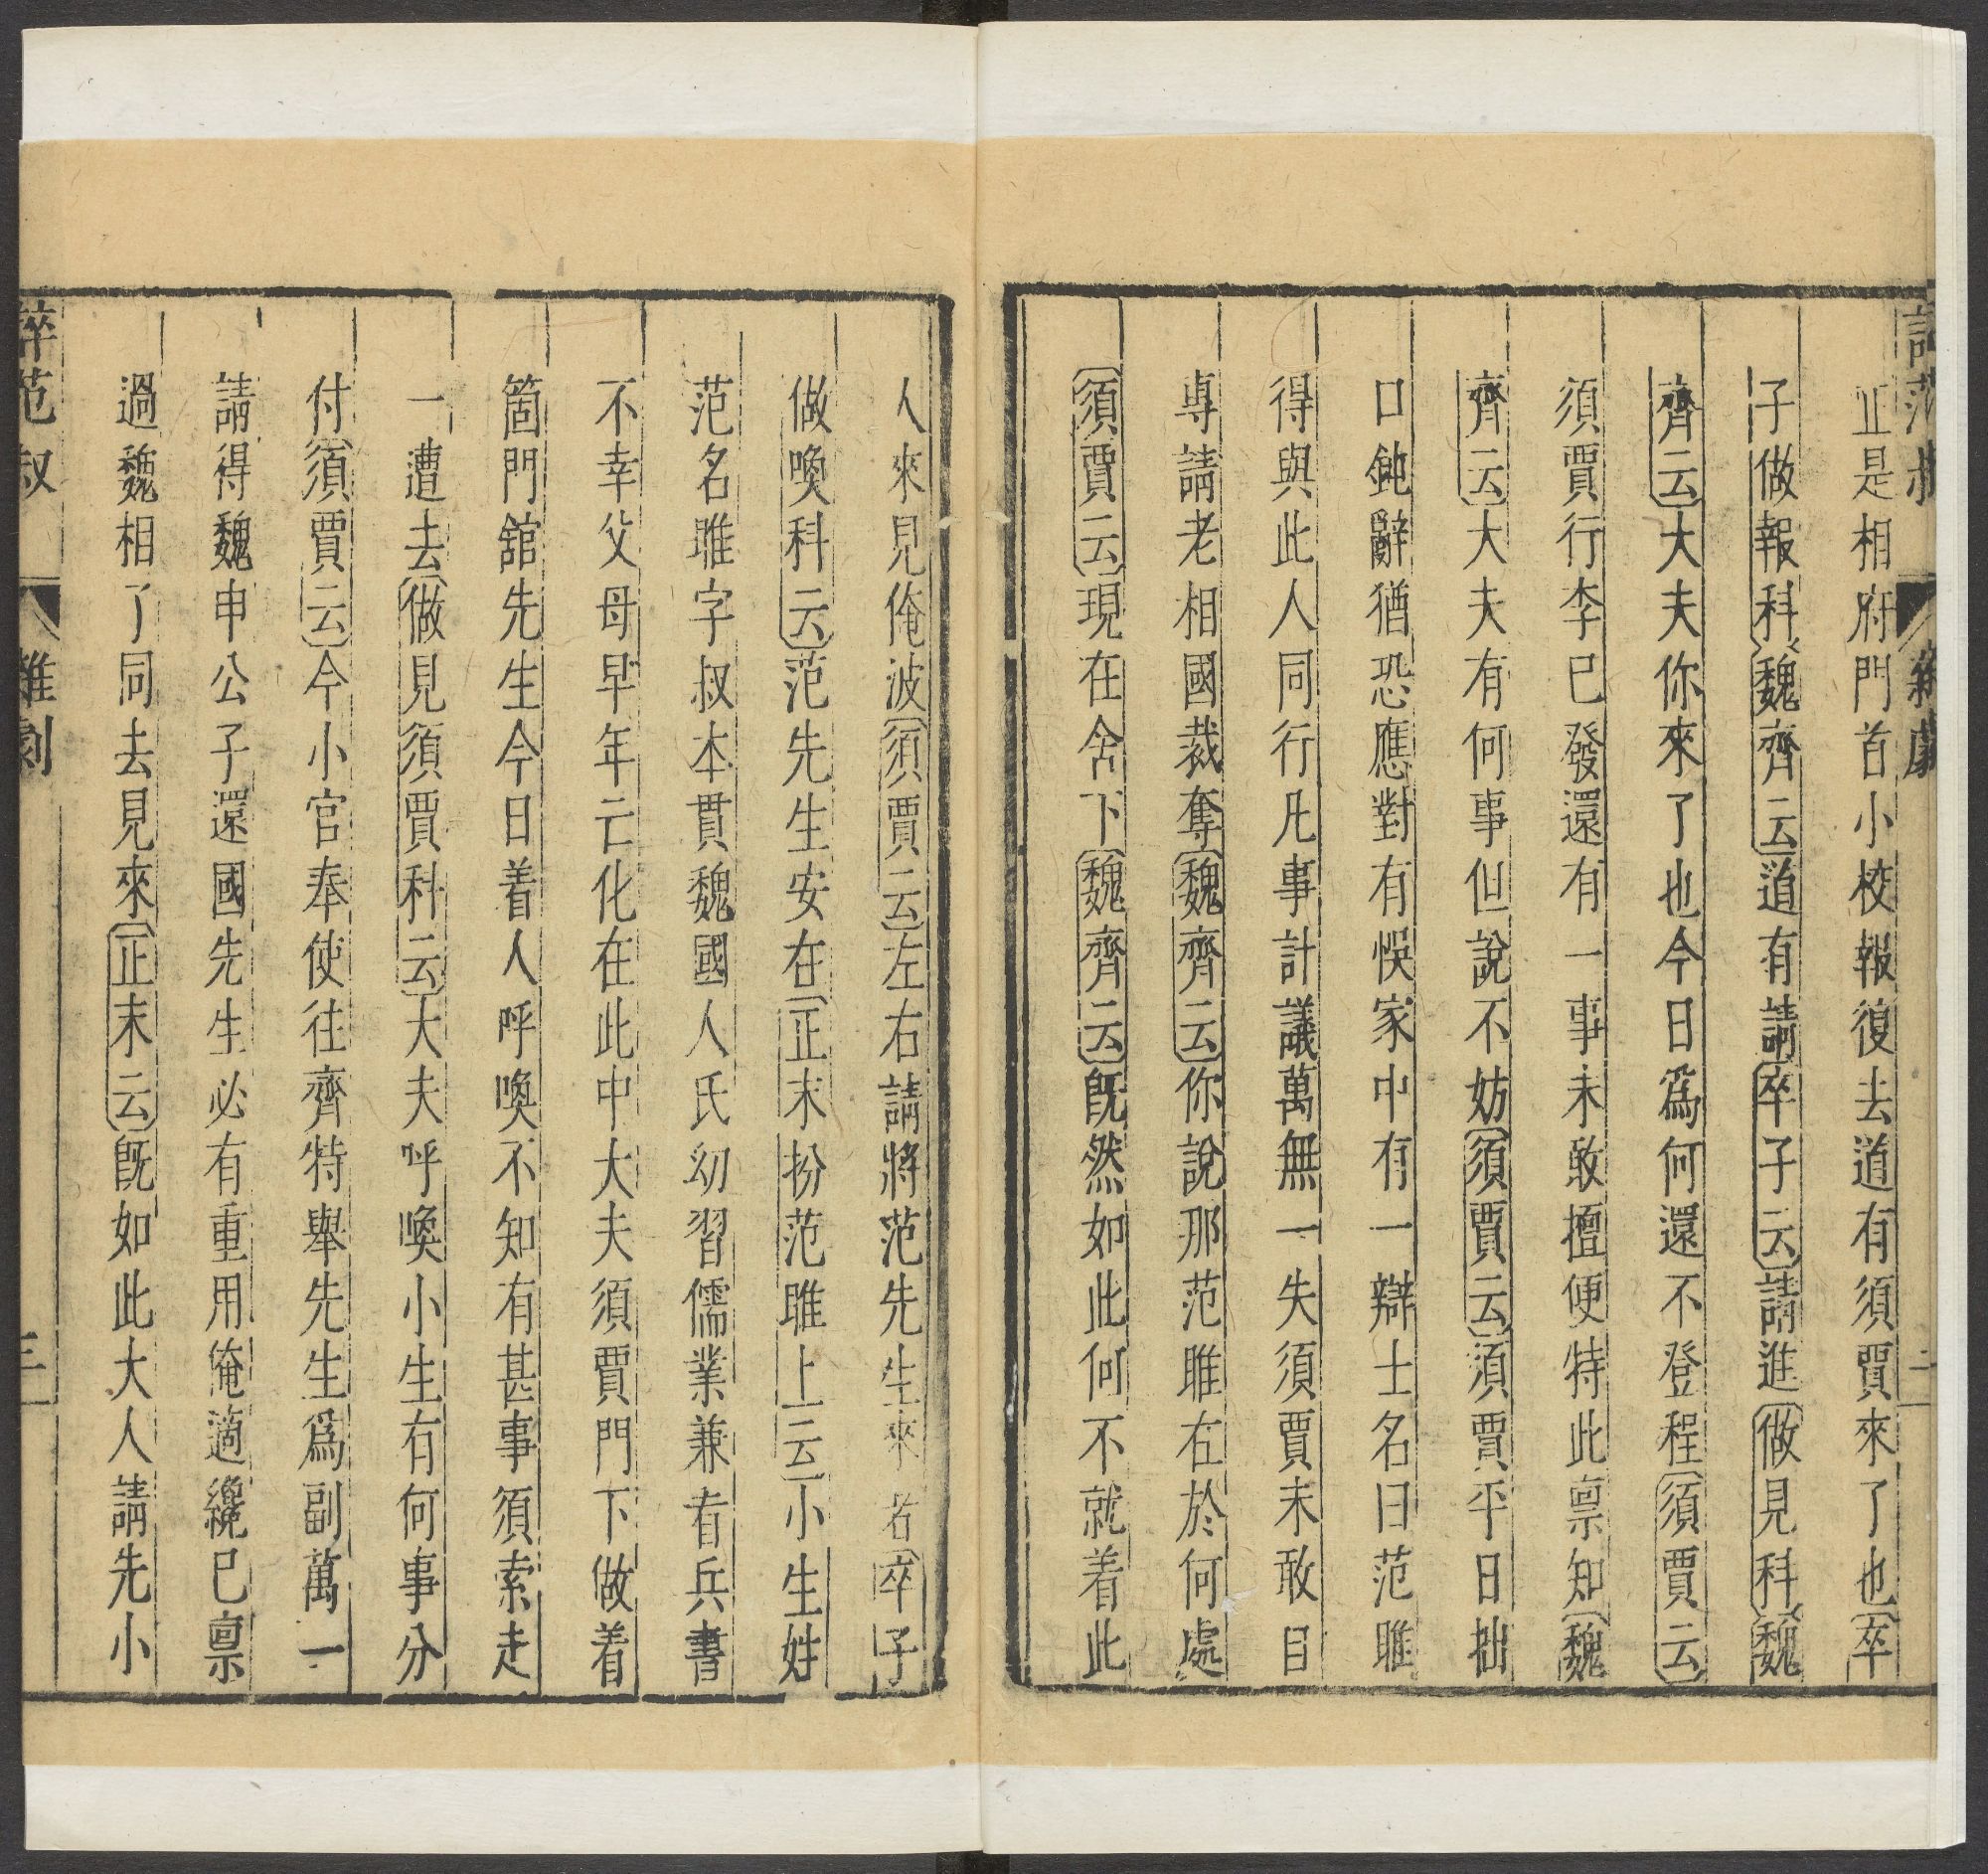 正是相府門首小校報復去道有須賈來了也〔卒
子做報科〕〔魏齊云〕道有請〔卒子云〕請進〔做見科〕〔魏
齊云〕大夫你來了也今日爲何還不登程〔須賈云〕
須賈行李已發還有一事未敢擅便特此禀知〔魏
齊云〕大夫有何事但說不妨〔須賈云〕須賈平日拙
口鈍辭猶恐應對有悞家中有一辯士名曰范雎
得與此人同行凡事計議萬無一失須賈未敢自
專請老相國裁奪〔魏齊云〕你說那范雎在於何處
〔須賈云〕現在舍下〔魏齊云〕旣然如此何不就着此
人來見俺波〔須賈云〕左右請將范先生來者〔卒子
做喚科云〕范先生安在〔正末扮范雎上云〕小生姓
范名雎字叔本貫魏國人氏幼習儒業兼看兵書
不幸父母早年亡化在此中大夫須賈門下做着
箇門舘先生今日着人呼喚不知有甚事須索走
一遭去〔做見須賈科云〕大夫呼喚小生有何事分
付〔須賈云〕今小官奉使往齊特舉先生爲副萬一
請得魏申公子還國先生必有重用俺適纔已禀
過魏相了同去見來〔正末云〕旣如此大人請先小
誶范叔
雜劇
三